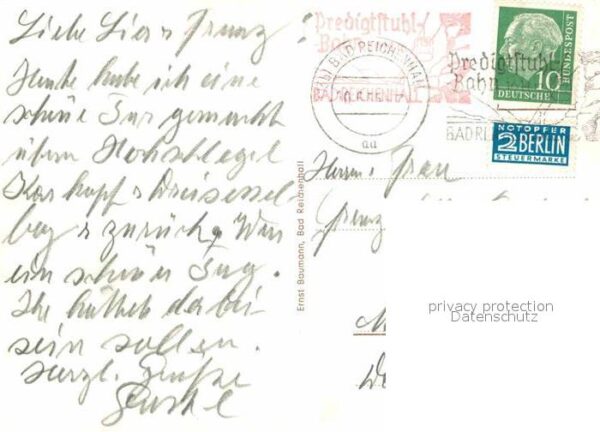 Liebe Lisa & Franz!
Heute habe ich eine
schöne Tur gemacht
übern Hochschlegel
Karkopf & Dreisessel-
berg & zurück. War
ein schöner Tag.
Ihr hättet dabei
sein sollen.
Herzl. Grüße
Ernst Baumann, Bad Reichenhall
Predigtstuhl-
Bahn
BAD REICHENHALL
BAD REICHENHALL
Predigtstuhl-
Bahn
BAD RE
10
DEUTSCHE
BUNDESPOST
NOTOPFER
2 BERLIN
STEUERMARKE
Herrn & Frau
Franz
privacy protection
Datenschutz